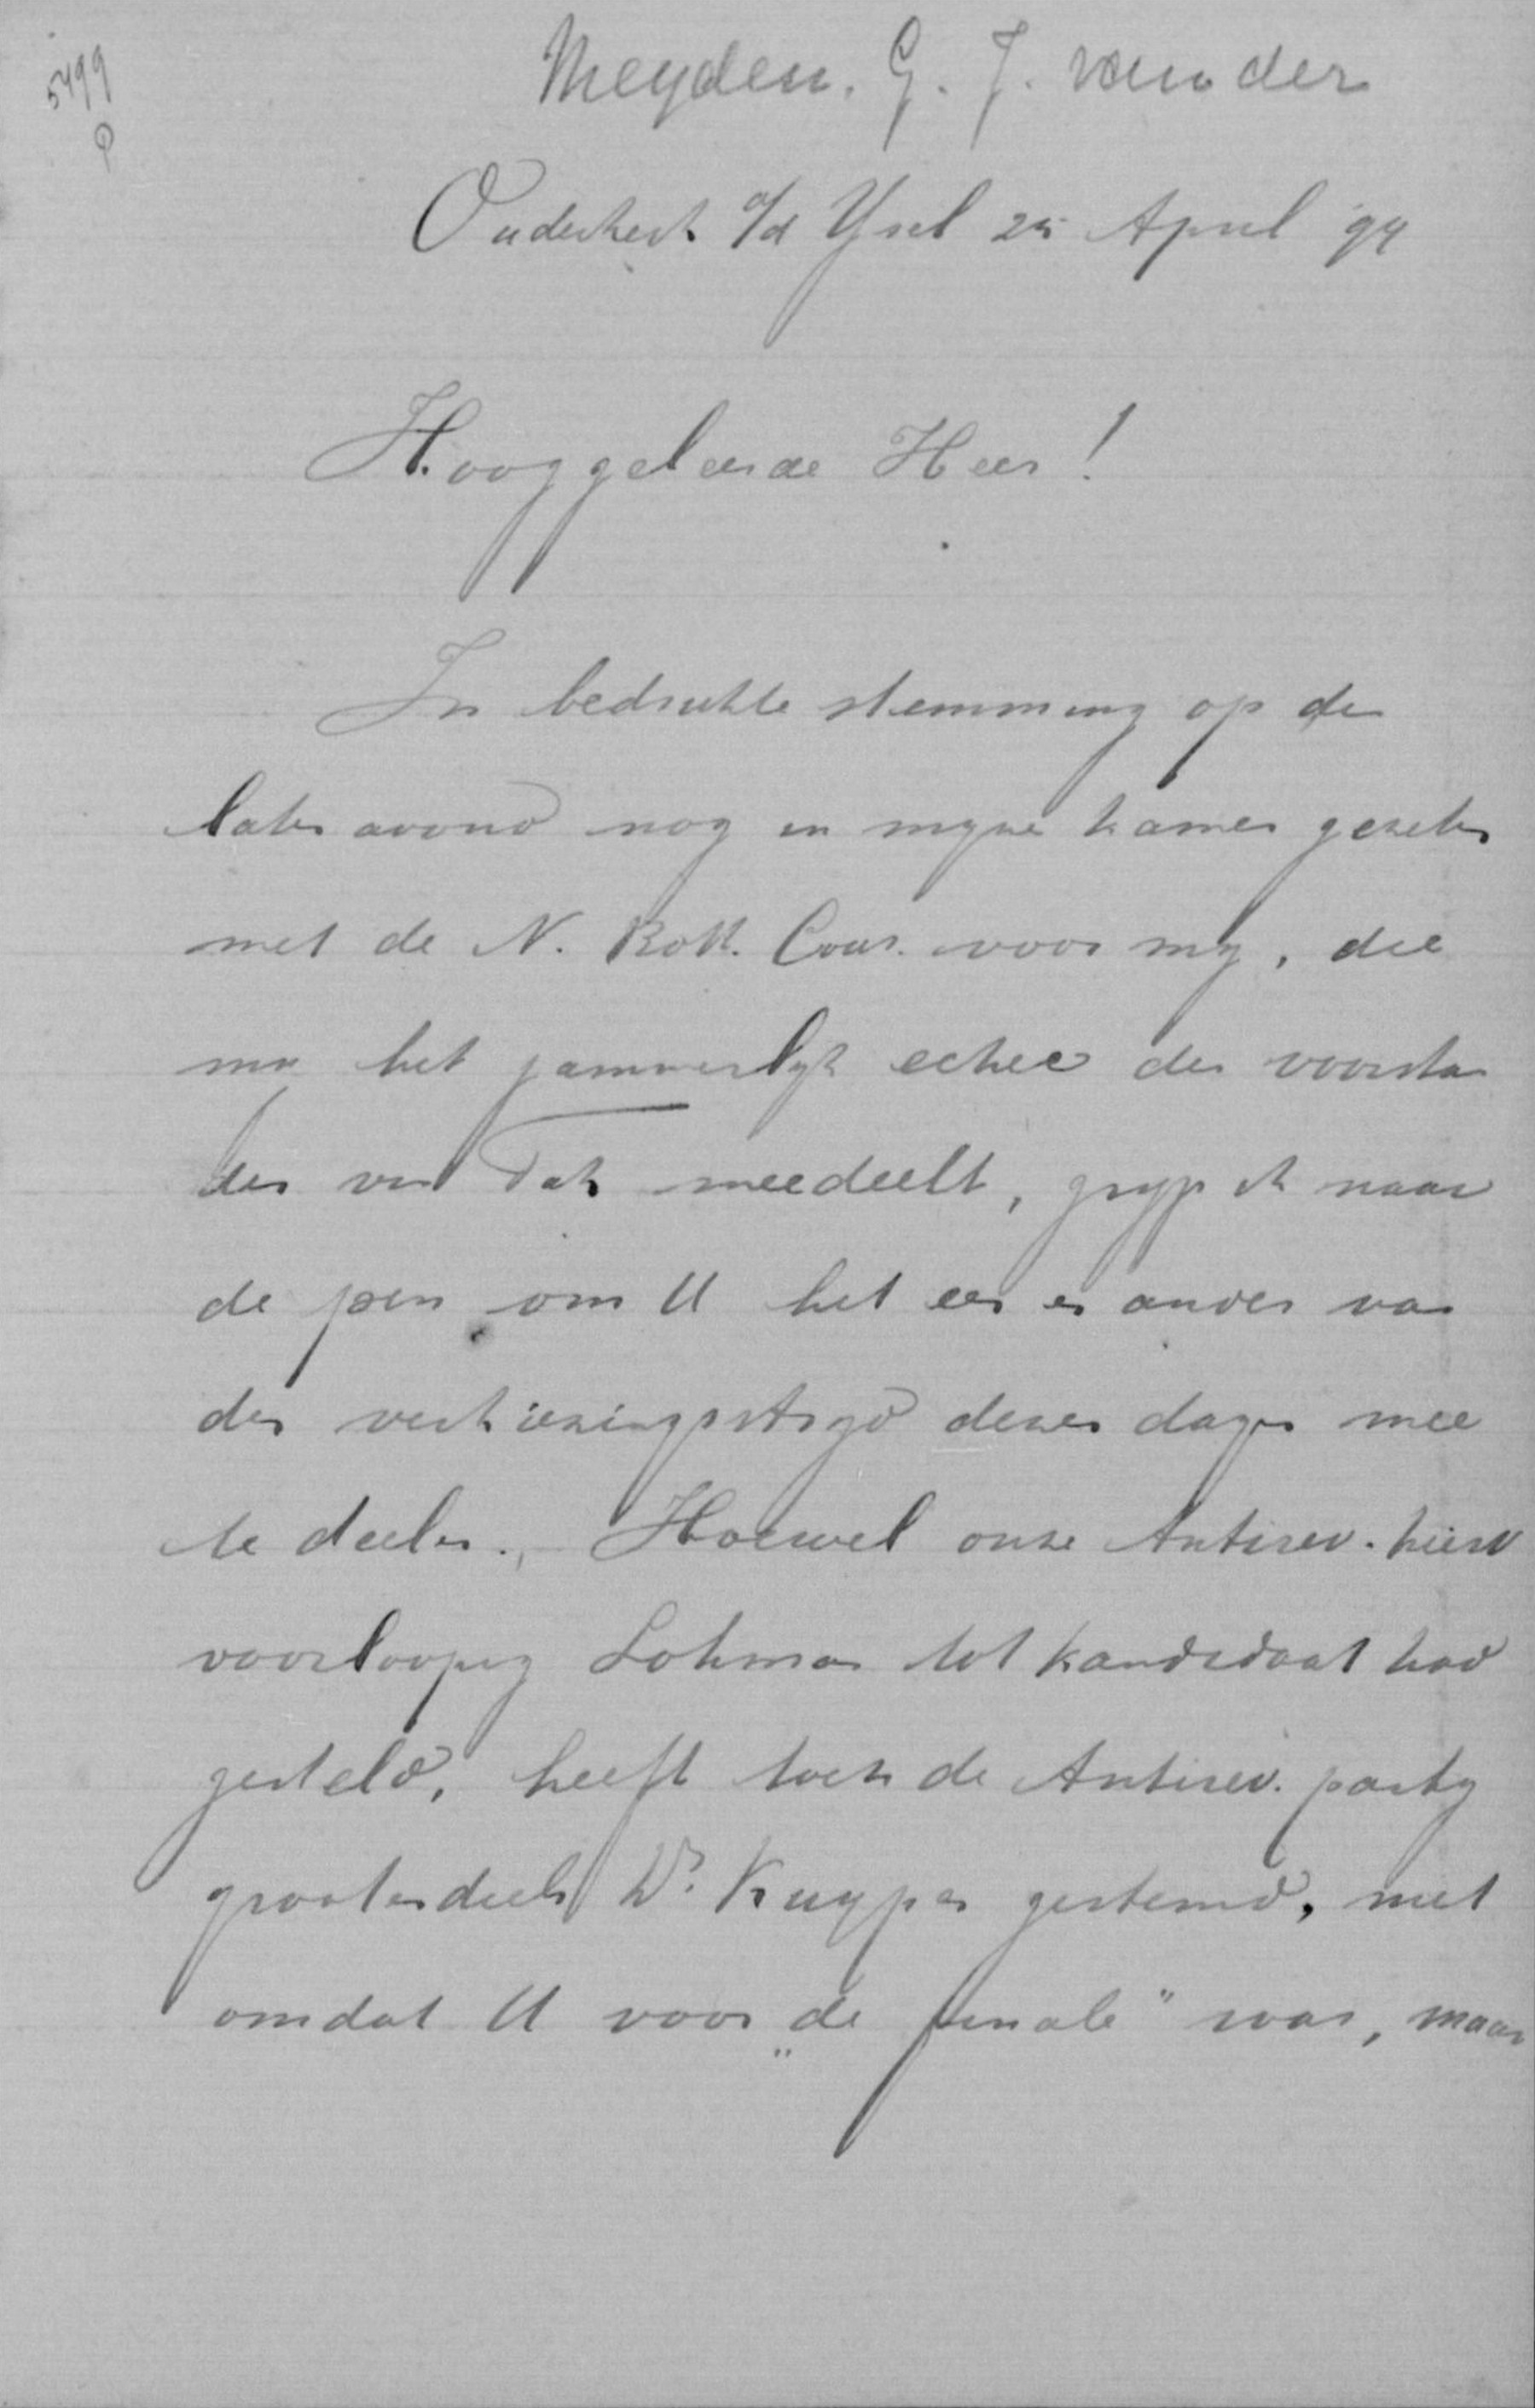 5499
Meyden. G. J. van der
Ouderkerk a/d Ysel 25 April 94
Hooggeleerde Heer!
In bedrukte stemming op den
laten avond nog in myne kamer gezeten
met de N. Rott. Cour. voor my, die
my het jammerlyk echec der voorstan
ders van Tak meedeelt, gryp ik naar
de pen om U het een en ander van
den verkiezingsstryd dezer dagen mee
te deelen. Hoewel onze Antirev. kiesv
voorloopig Lohman tot kandidaat had
gesteld, heeft toch de Antirev. party
grootendeels Dr. Kuyper gestemd, niet
omdat U voor „de finale" was, maar